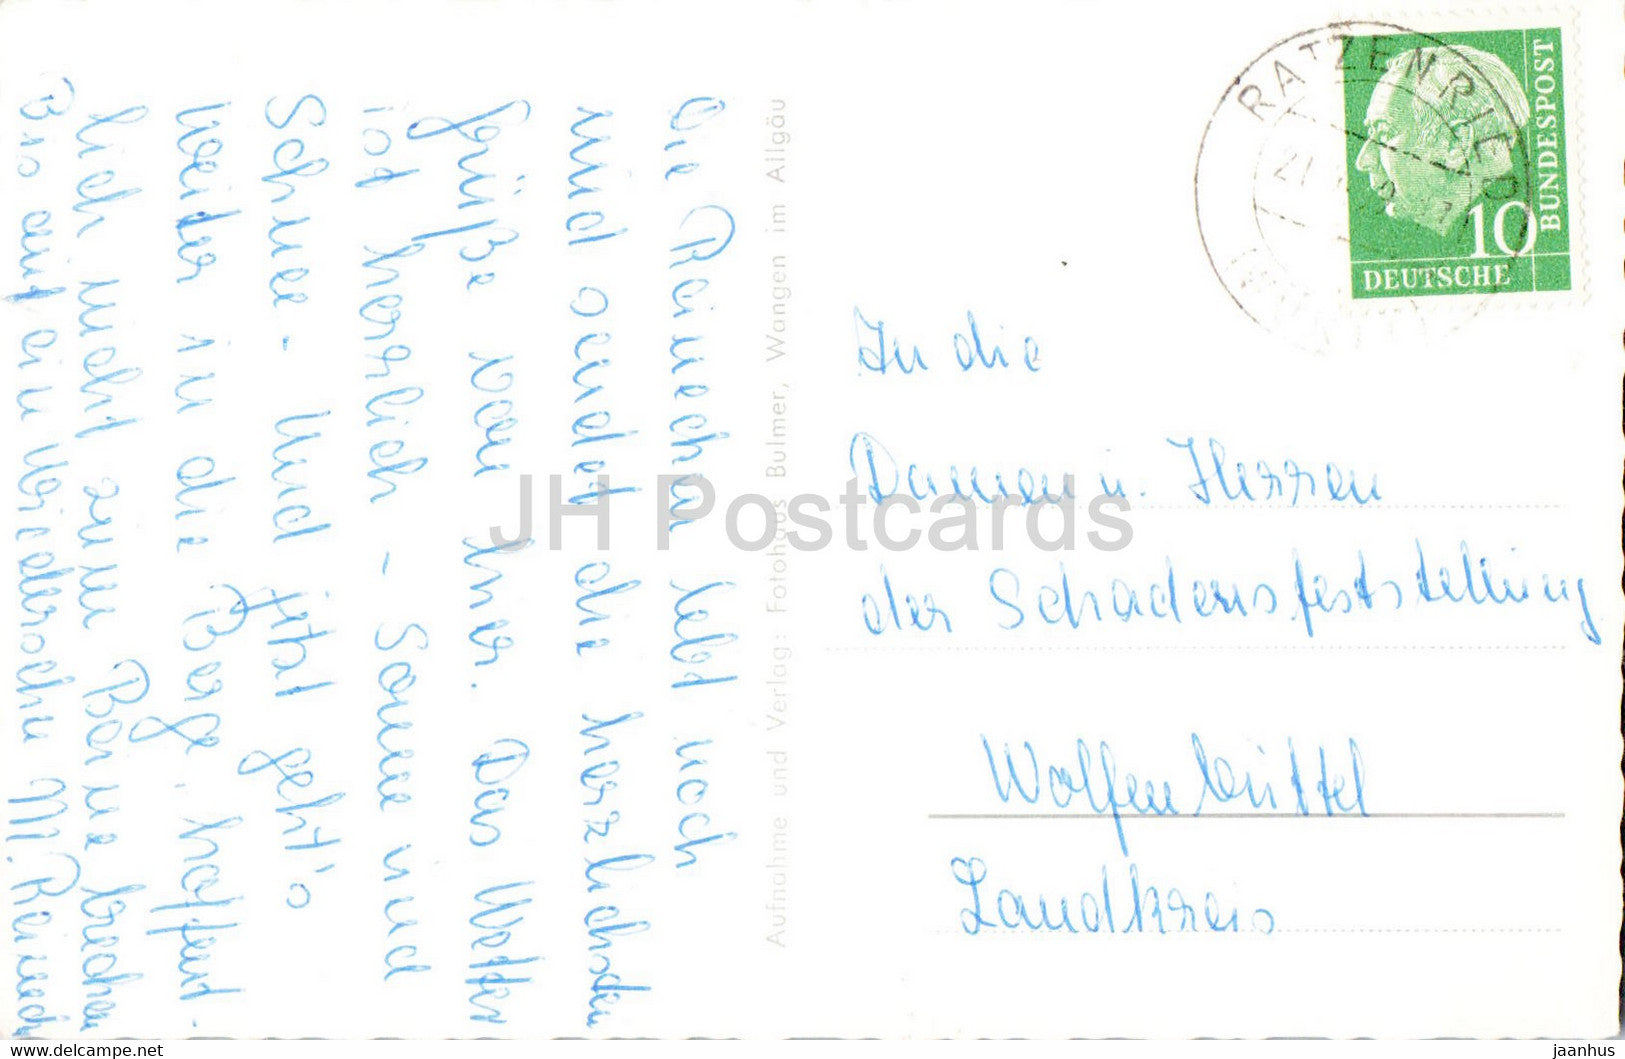 Die Reinecken lebt noch
und sendet die herzlichsten
Grüße von hier. Das Wetter
ist herrlich - Sonne und
Schnee - Und jetzt geht's
weiter in die Berge, hoffent-
lich nicht zum Beine brechen
Bis auf ein Wiedersehn M. Reineck
Aufnahme und Verlag: Fotohaus Bulmer, Wangen im Allgäu
RATZENRIED
10
BUNDESPOST
DEUTSCHE
In die
Damen u. Herren
der Schadensfeststellung
Wolfenbüttel
Landkreis
JH Postcards
www.delcampe.net
jaanhus